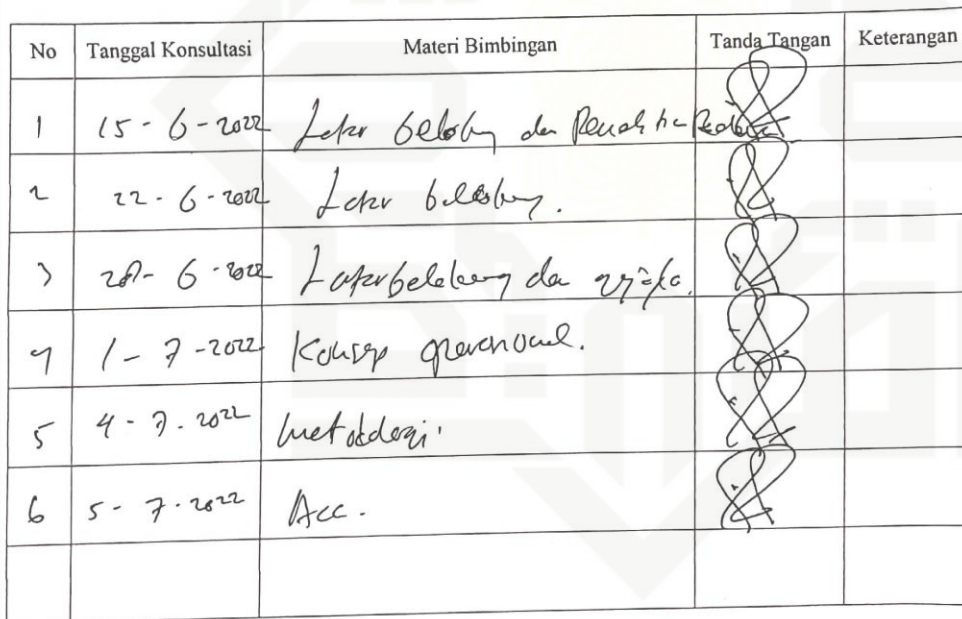 No Tanggal Konsultasi Materi Bimbingan Tanda Tangan Keterangan
1 15-6-2022 Latar belakang dan
2 22-6-2022 Latar belakang.
3 28-6-2022 Latar belakang dan
4 1-7-2022 Konsep operasional.
5 4-7-2022 Metodologi.
6 5-7-2022 Acc.